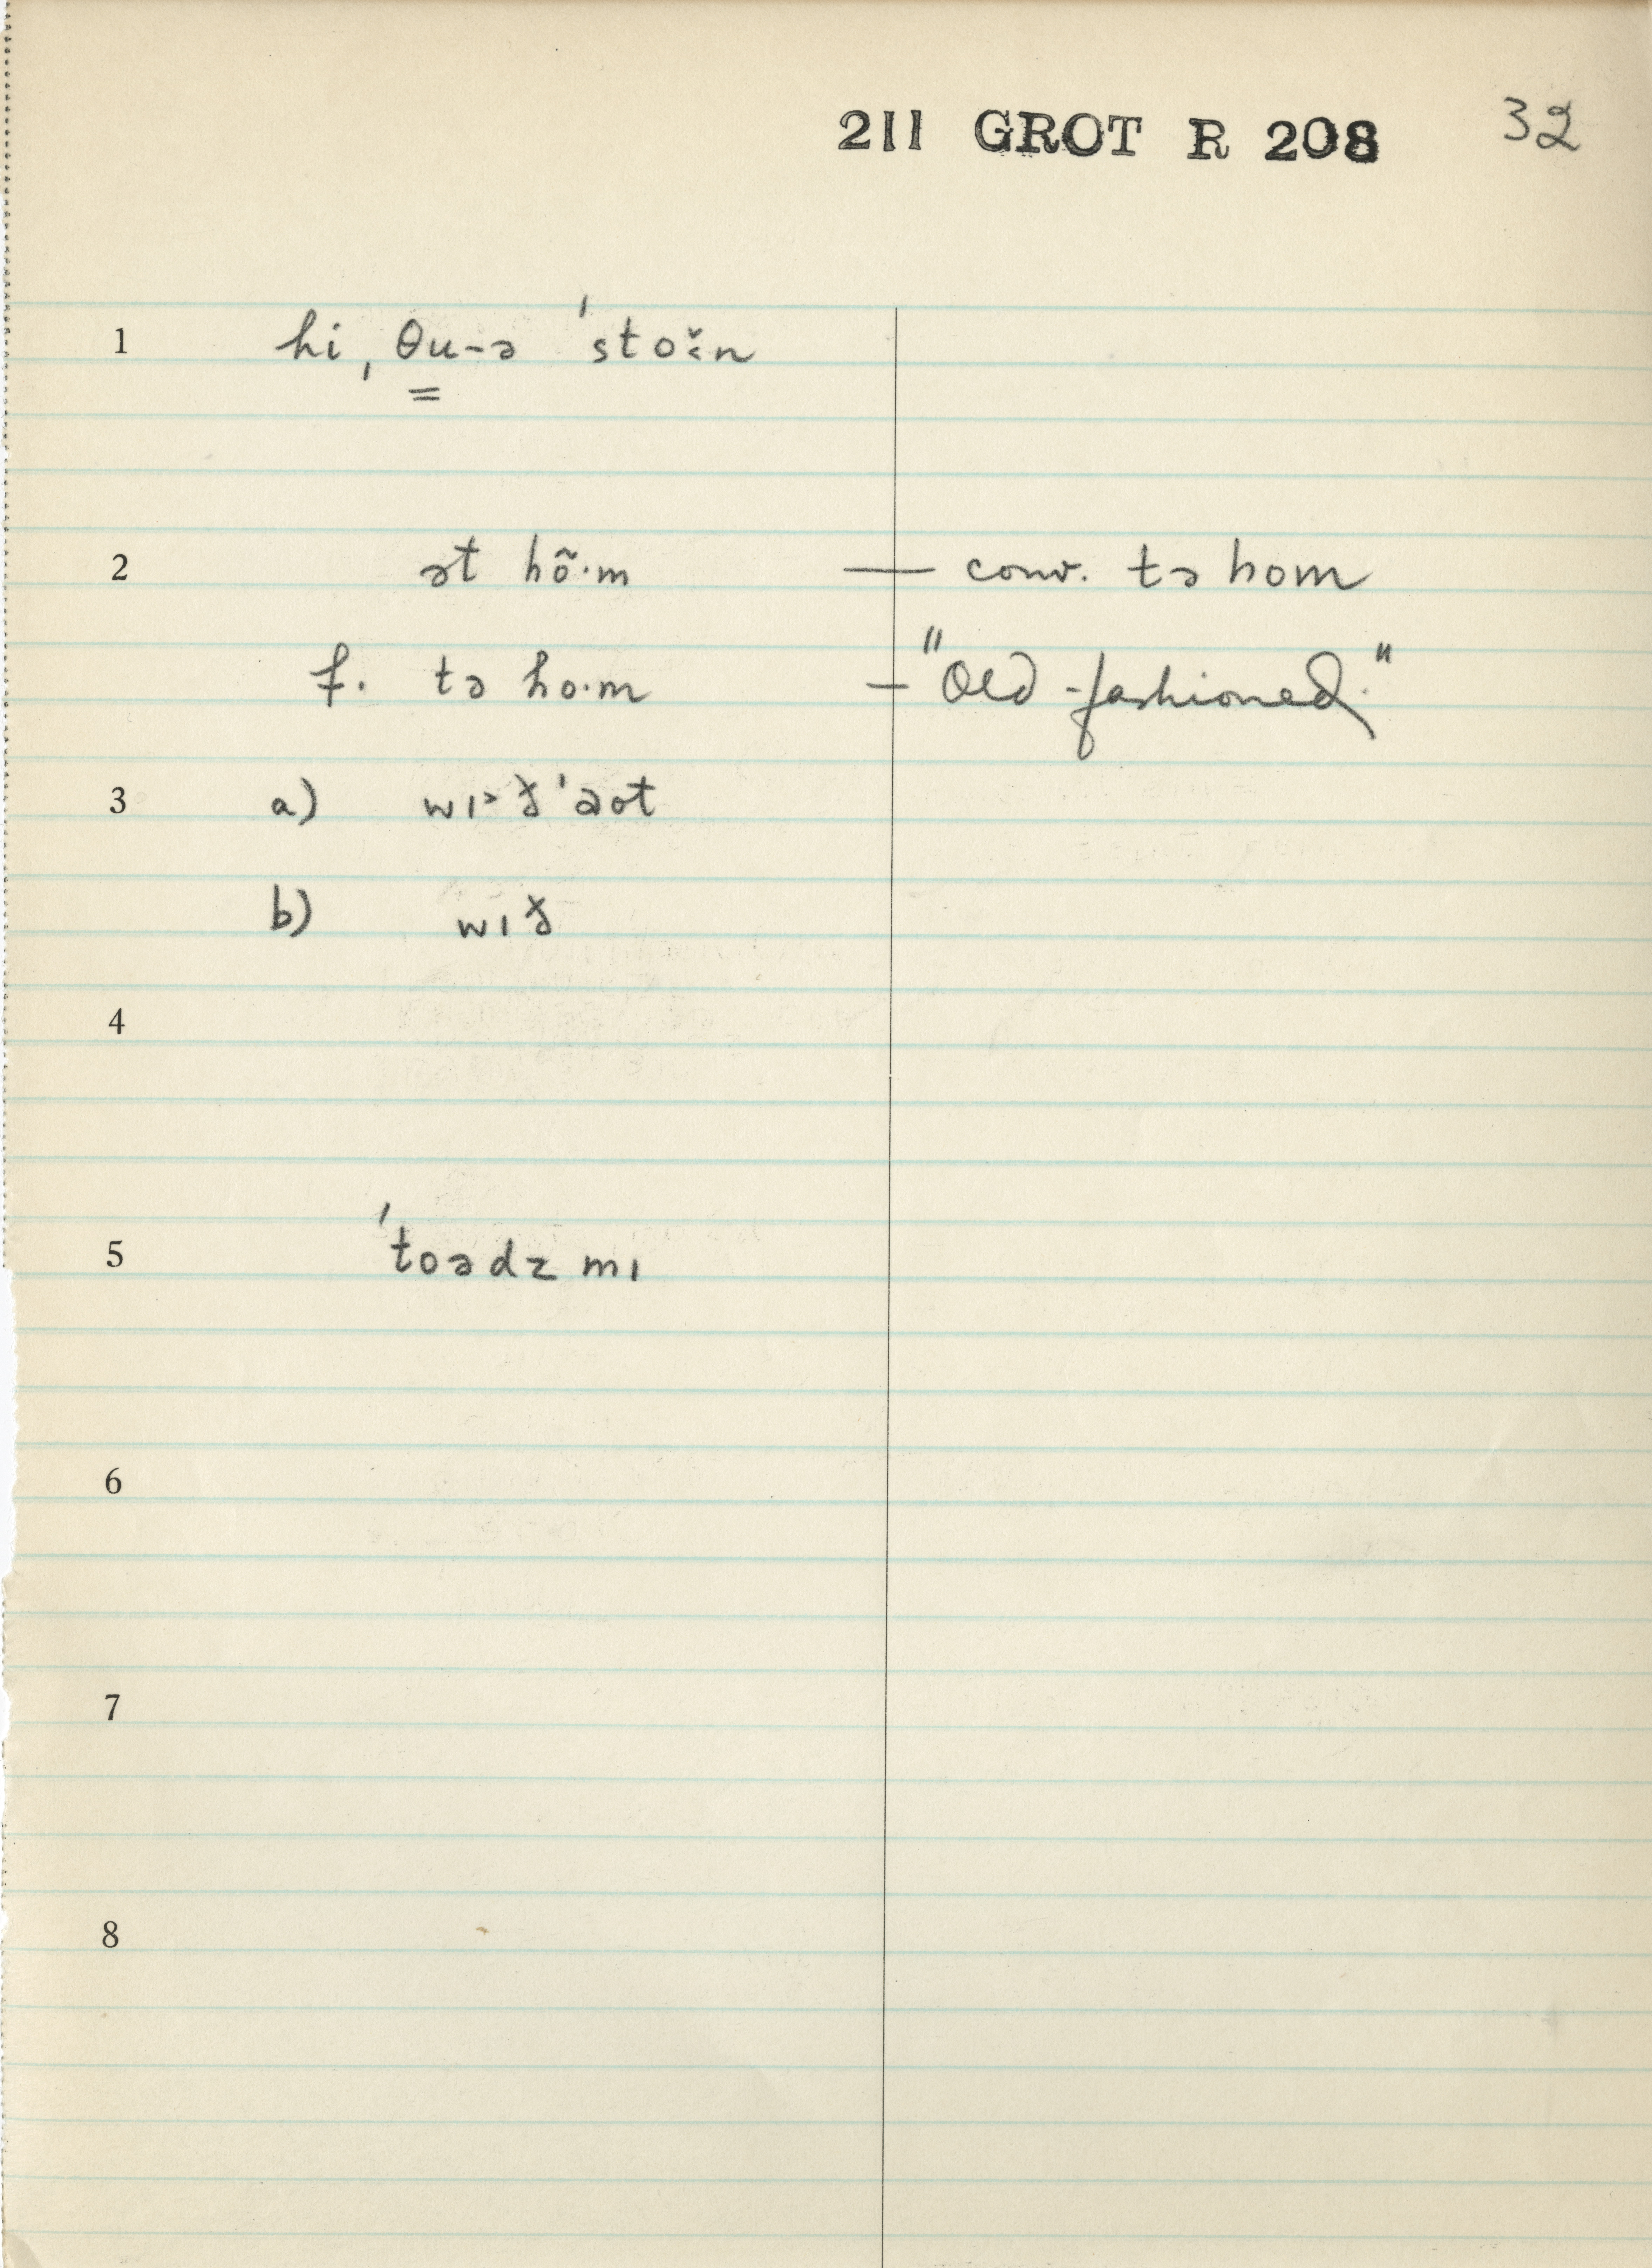 211 GROT R 208 32
1 hi ˌθu-ə ˈstoˑ̆n
2 ət hõˑm — conv. tə hom
f. tə hoˑm — "Old-fashioned."
3 a) wɪ˃ð̆ˈəot
b) wɪð̆
4
5 ˈtoədz mɪ
6
7
8